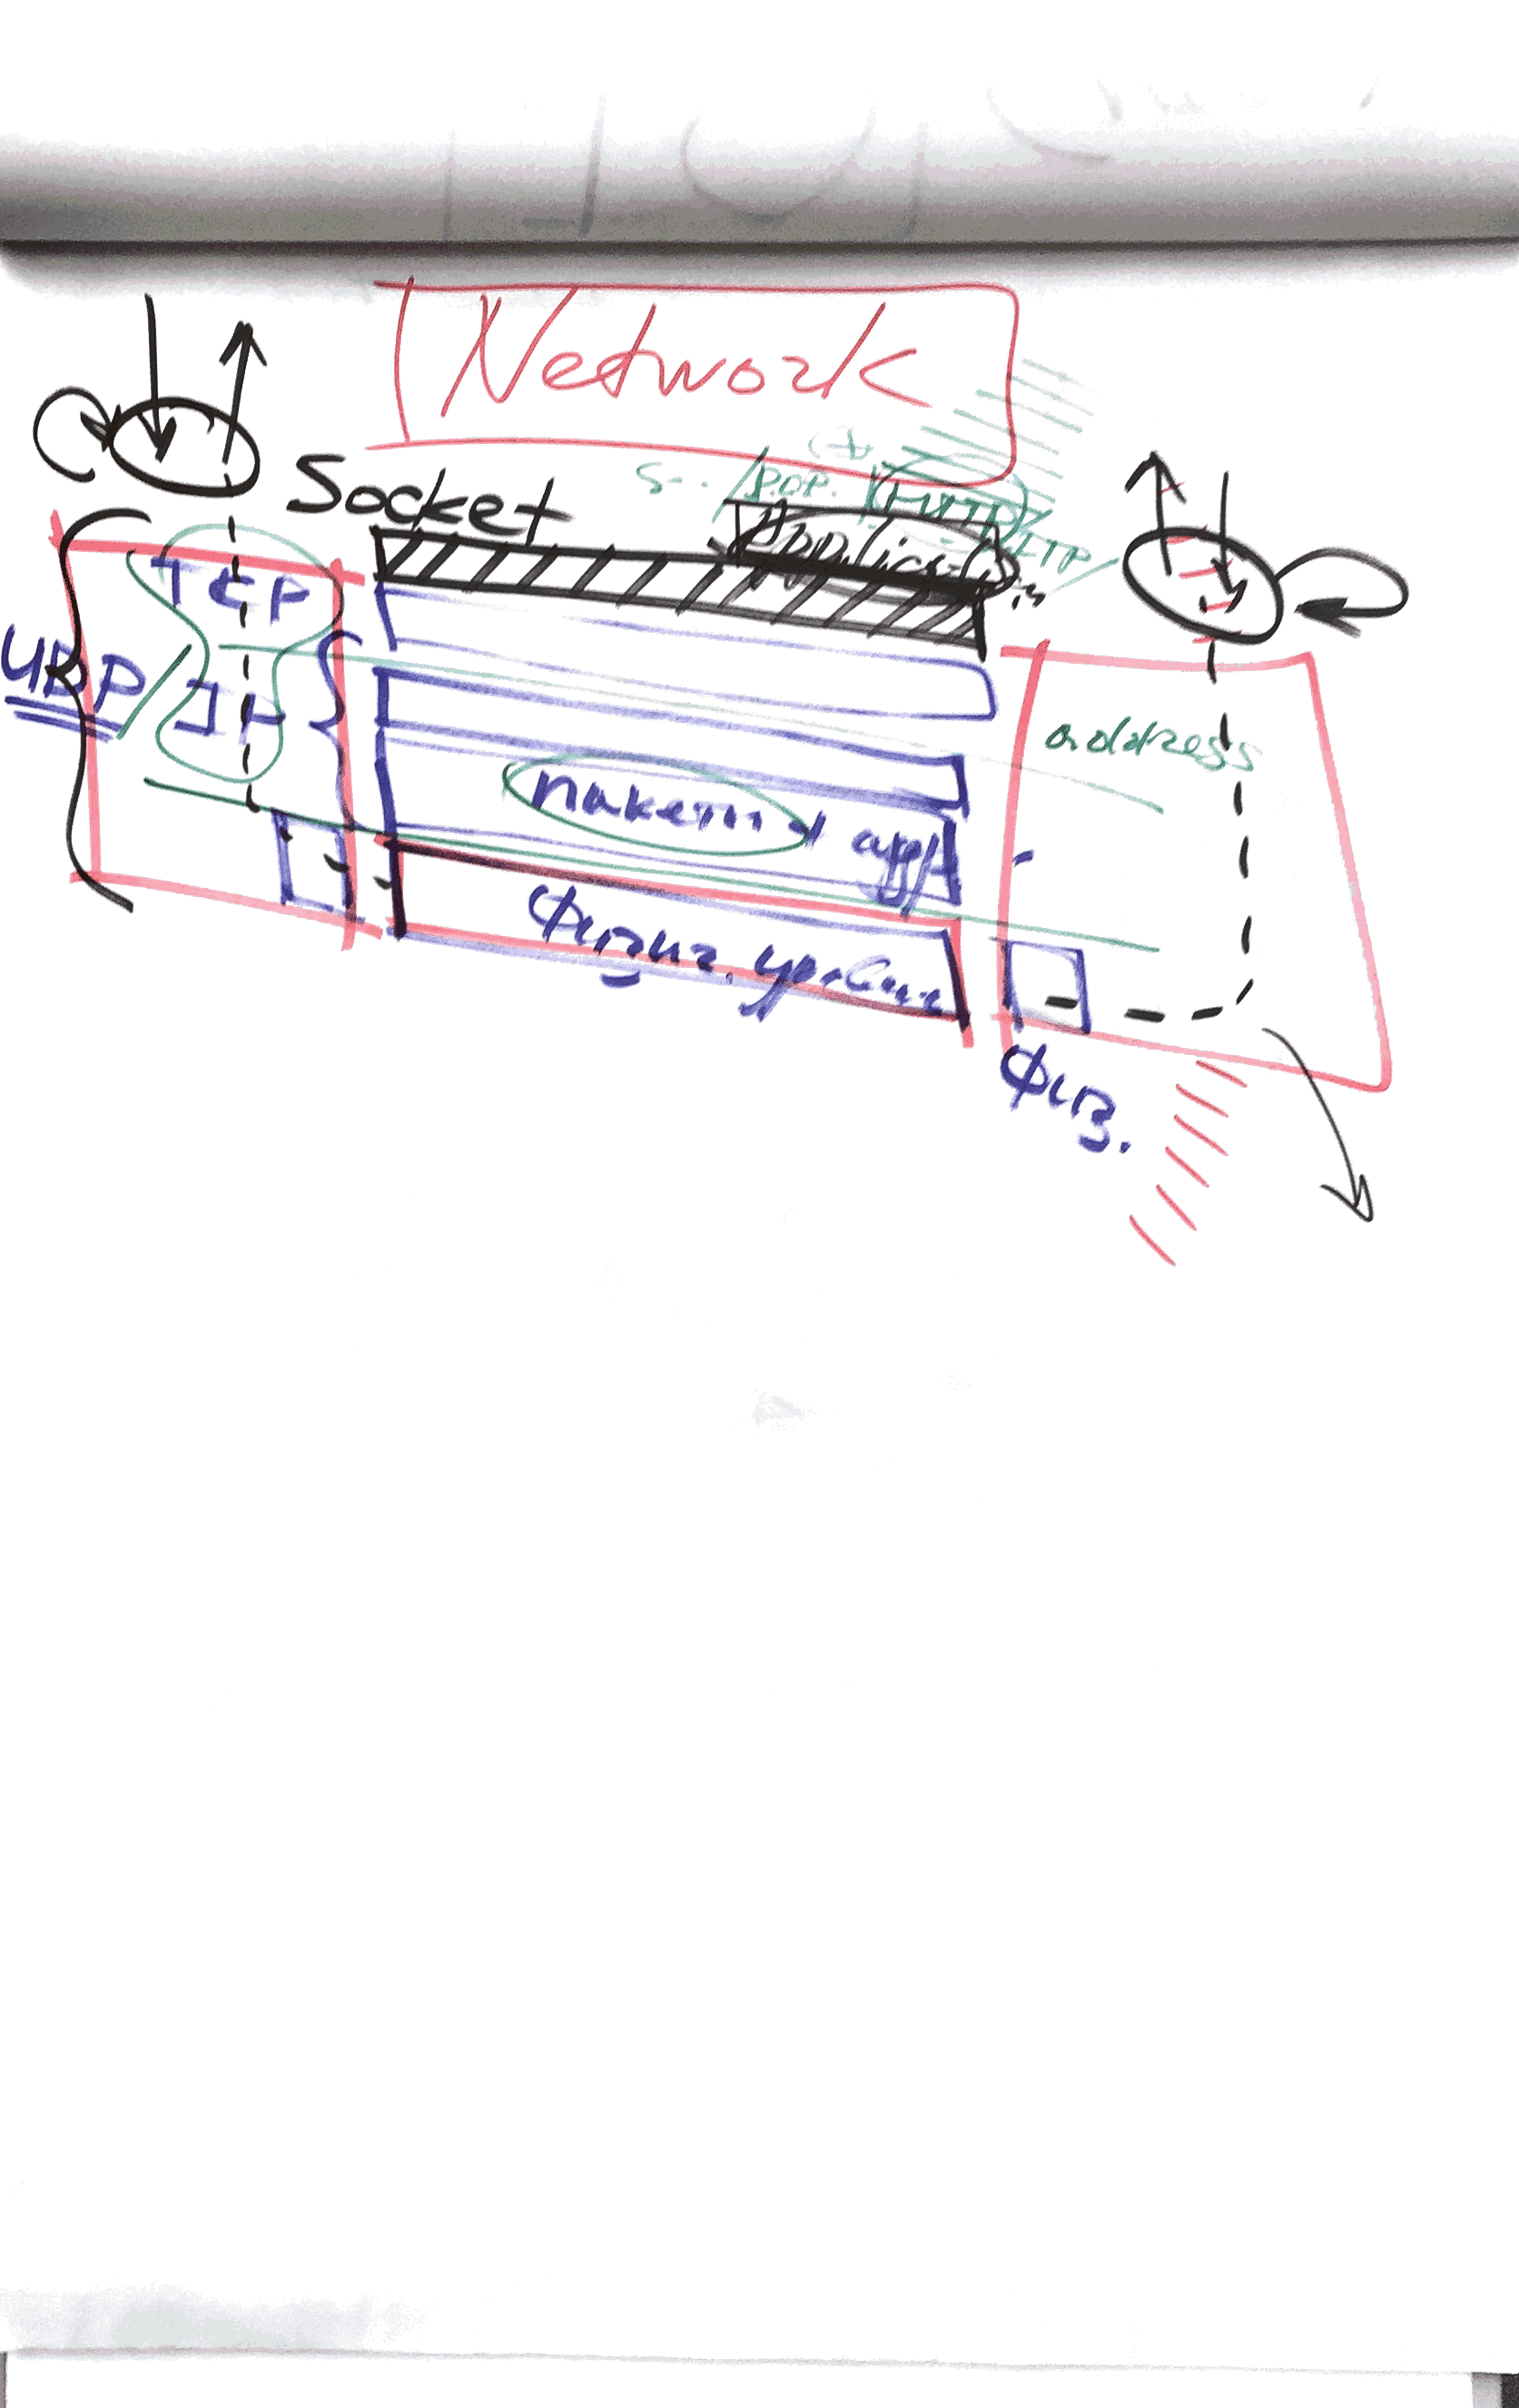 Network
Socket
S.. /POP. HTTP
FTP/
Application
TCP
UDP/IP
address
пакеты адр
Физич. уровень
Физ.